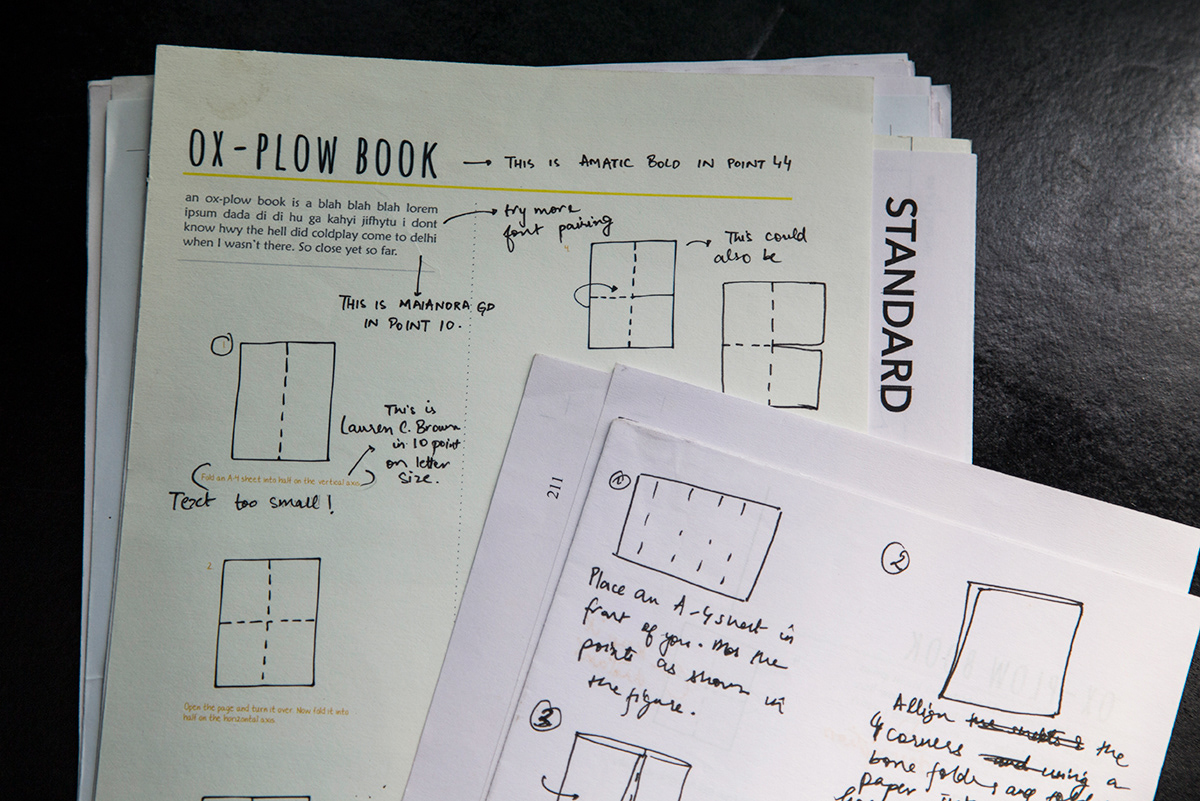 OX-PLOW BOOK
THIS IS AMATIC BOLD IN POINT 44
an ox-plow book is a blah blah blah lorem
ipsum dada di di hu ga kahyi jifhytu i dont
know hwy the hell did coldplay come to delhi
when I wasn't there. So close yet so far.
try more
font pairing
4
This could
also be
THIS IS MAIANDRA GD
IN POINT 10.
1
This is
Lauren C. Brown
in 10 point
on letter
size.
Fold an A-4 sheet into half on the vertical axis
Text too small!
2
Open the page and turn it over. Now fold it into
half on the horizontal axis.
STANDARD
211
1
Place an A-4 sheet in
front of you. the
points as shown in
the figure.
2
Allign the
4 corners using a
bone folder and
paper
3